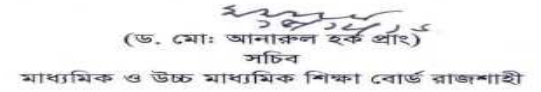 (ড. মোঃ আনারুল হক প্রাং)
সচিব
মাধ্যমিক ও উচ্চ মাধ্যমিক শিক্ষা বোর্ড রাজশাহী